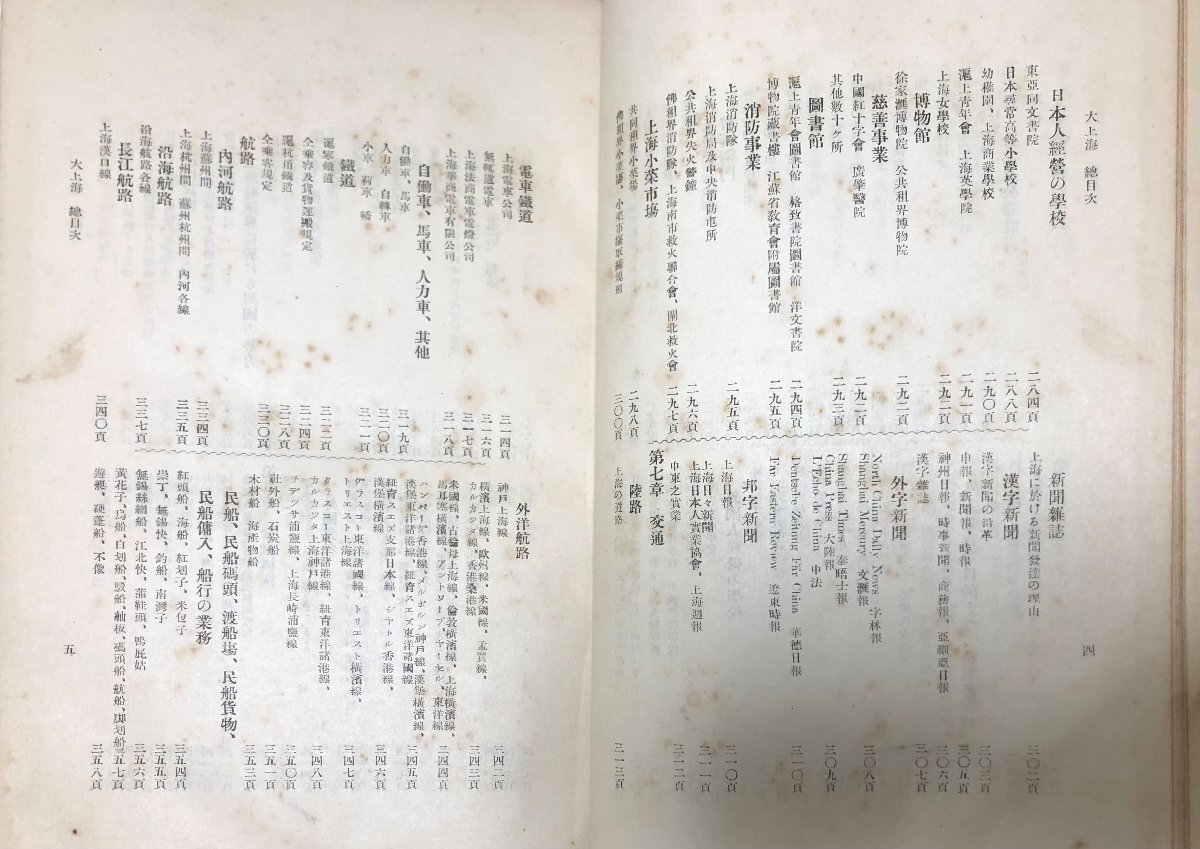 大上海 總目次
四
日本人經營の學校
東亞同文書院
二八四頁
日本尋常高等小學校
二八八頁
幼稚園、上海商業學校
二九〇頁
滬上青年會 上海英學院
二九一頁
上海女學校
二九二頁
博物館
徐家滙博物院 公共租界博物院
二九二頁
慈善事業
中國紅十字會 廣肇醫院
二九二頁
其他數十ヶ所
二九三頁
圖書館
滬上青年會圖書館 格致書院圖書館 洋文書院
二九四頁
博物院藏書樓 江蘇省敎育會附屬圖書館
二九五頁
消防事業
上海消防隊
二九五頁
上海消防局及中央消防屯所
公共租界失火警鐘
二九六頁
佛租界消防隊、上海南市救火聯合會、閘北救火會
二九七頁
上海小菜市塲
共同租界小菜塲
二九八頁
佛租界小菜塲、小菜市塲取締規則
三〇〇頁
新聞雜誌
上海に於ける新聞發達の理由
三〇二頁
漢字新聞
漢字新聞の沿革
三〇三頁
申報、新聞報、時報
三〇五頁
神州日報、時事新聞、商務報、亞細亞日報
三〇六頁
漢字雜誌
三〇七頁
外字新聞
North China Daily News 字林報
Shanghai Mercury 文滙報
三〇八頁
Shanghai Times 泰晤士報
China Press 大陸報
三〇九頁
L'Echo de China 中法
Deutsche Zeitung Für China 華德日報
三一〇頁
Far Eastern Review 遼東時報
邦字新聞
上海日報
三一〇頁
上海日々新聞
上海日本人實業協會、上海週報
三一一頁
中東之實業
三一二頁
第七章 交通
陸路
上海の道路
三一三頁
電車鐵道
上海電車公司
三一四頁
無軌道電車
三一六頁
上海法商電車電燈公司
三一七頁
上海華商電車有限公司
三一八頁
自働車、馬車、人力車、其他
自働車 馬車
三一九頁
人力車 自轉車
三二〇頁
小車 荷車 轎
三二一頁
鐵道
滬寧鐵道
三二二頁
仝乘客及貨物運搬規定
三二四頁
滬杭甬鐵道
三二八頁
仝乘客規定
三三〇頁
航路
內河航路
上海蘇州間
三三四頁
上海杭州間 蘇州杭州間 內河各線
三三五頁
沿海航路
沿海航路各線
三三七頁
長江航路
上海漢口線
三四〇頁
外洋航路
神戸上海線
三四二頁
橫濱上海線、歐州線、米國線、孟買線、
カルカツタ線、香港桑港線
三四三頁
米國線、古倫母上海線、倫敦橫濱線、上海橫濱線、
馬耳塞橫濱線、アントワープ、マーセル、東洋線
三四四頁
ハンバーグ香港線、メルボルン神戸線、漢堡橫濱線、
漢堡東洋諸港線、紐育スエズ東洋諸國線
三四五頁
紐育スエズ支那日本線、シヤトル香港線、
漢堡橫濱線
三四六頁
グラスコー東洋諸國線、トリエスト橫濱線、
トリエスト上海線
三四七頁
グラスコー東洋諸港線、紐育東洋諸港線、
カルカツタ上海神戸線
三四八頁
ヲデツサ浦鹽線、上海長崎浦鹽線
三五〇頁
社外船、石炭船
三五一頁
木材船 海產物船
三五三頁
民船、民船碼頭、渡船塲、民船貨物、
民船傭入、船行の業務
紅頭船、海船、紅划子、米包子
三五四頁
崇丁、無錫快、釣船、南灣子
三五五頁
無錫絲網船、江北快、蒲鞋頭、鴨屁姑
三五六頁
黃花子、烏船、白划船、駁船、舢板、碼頭船、航船、脚划船
三五七頁
遊艇、硬蓬船、不像
三五八頁
大上海 總目次
五